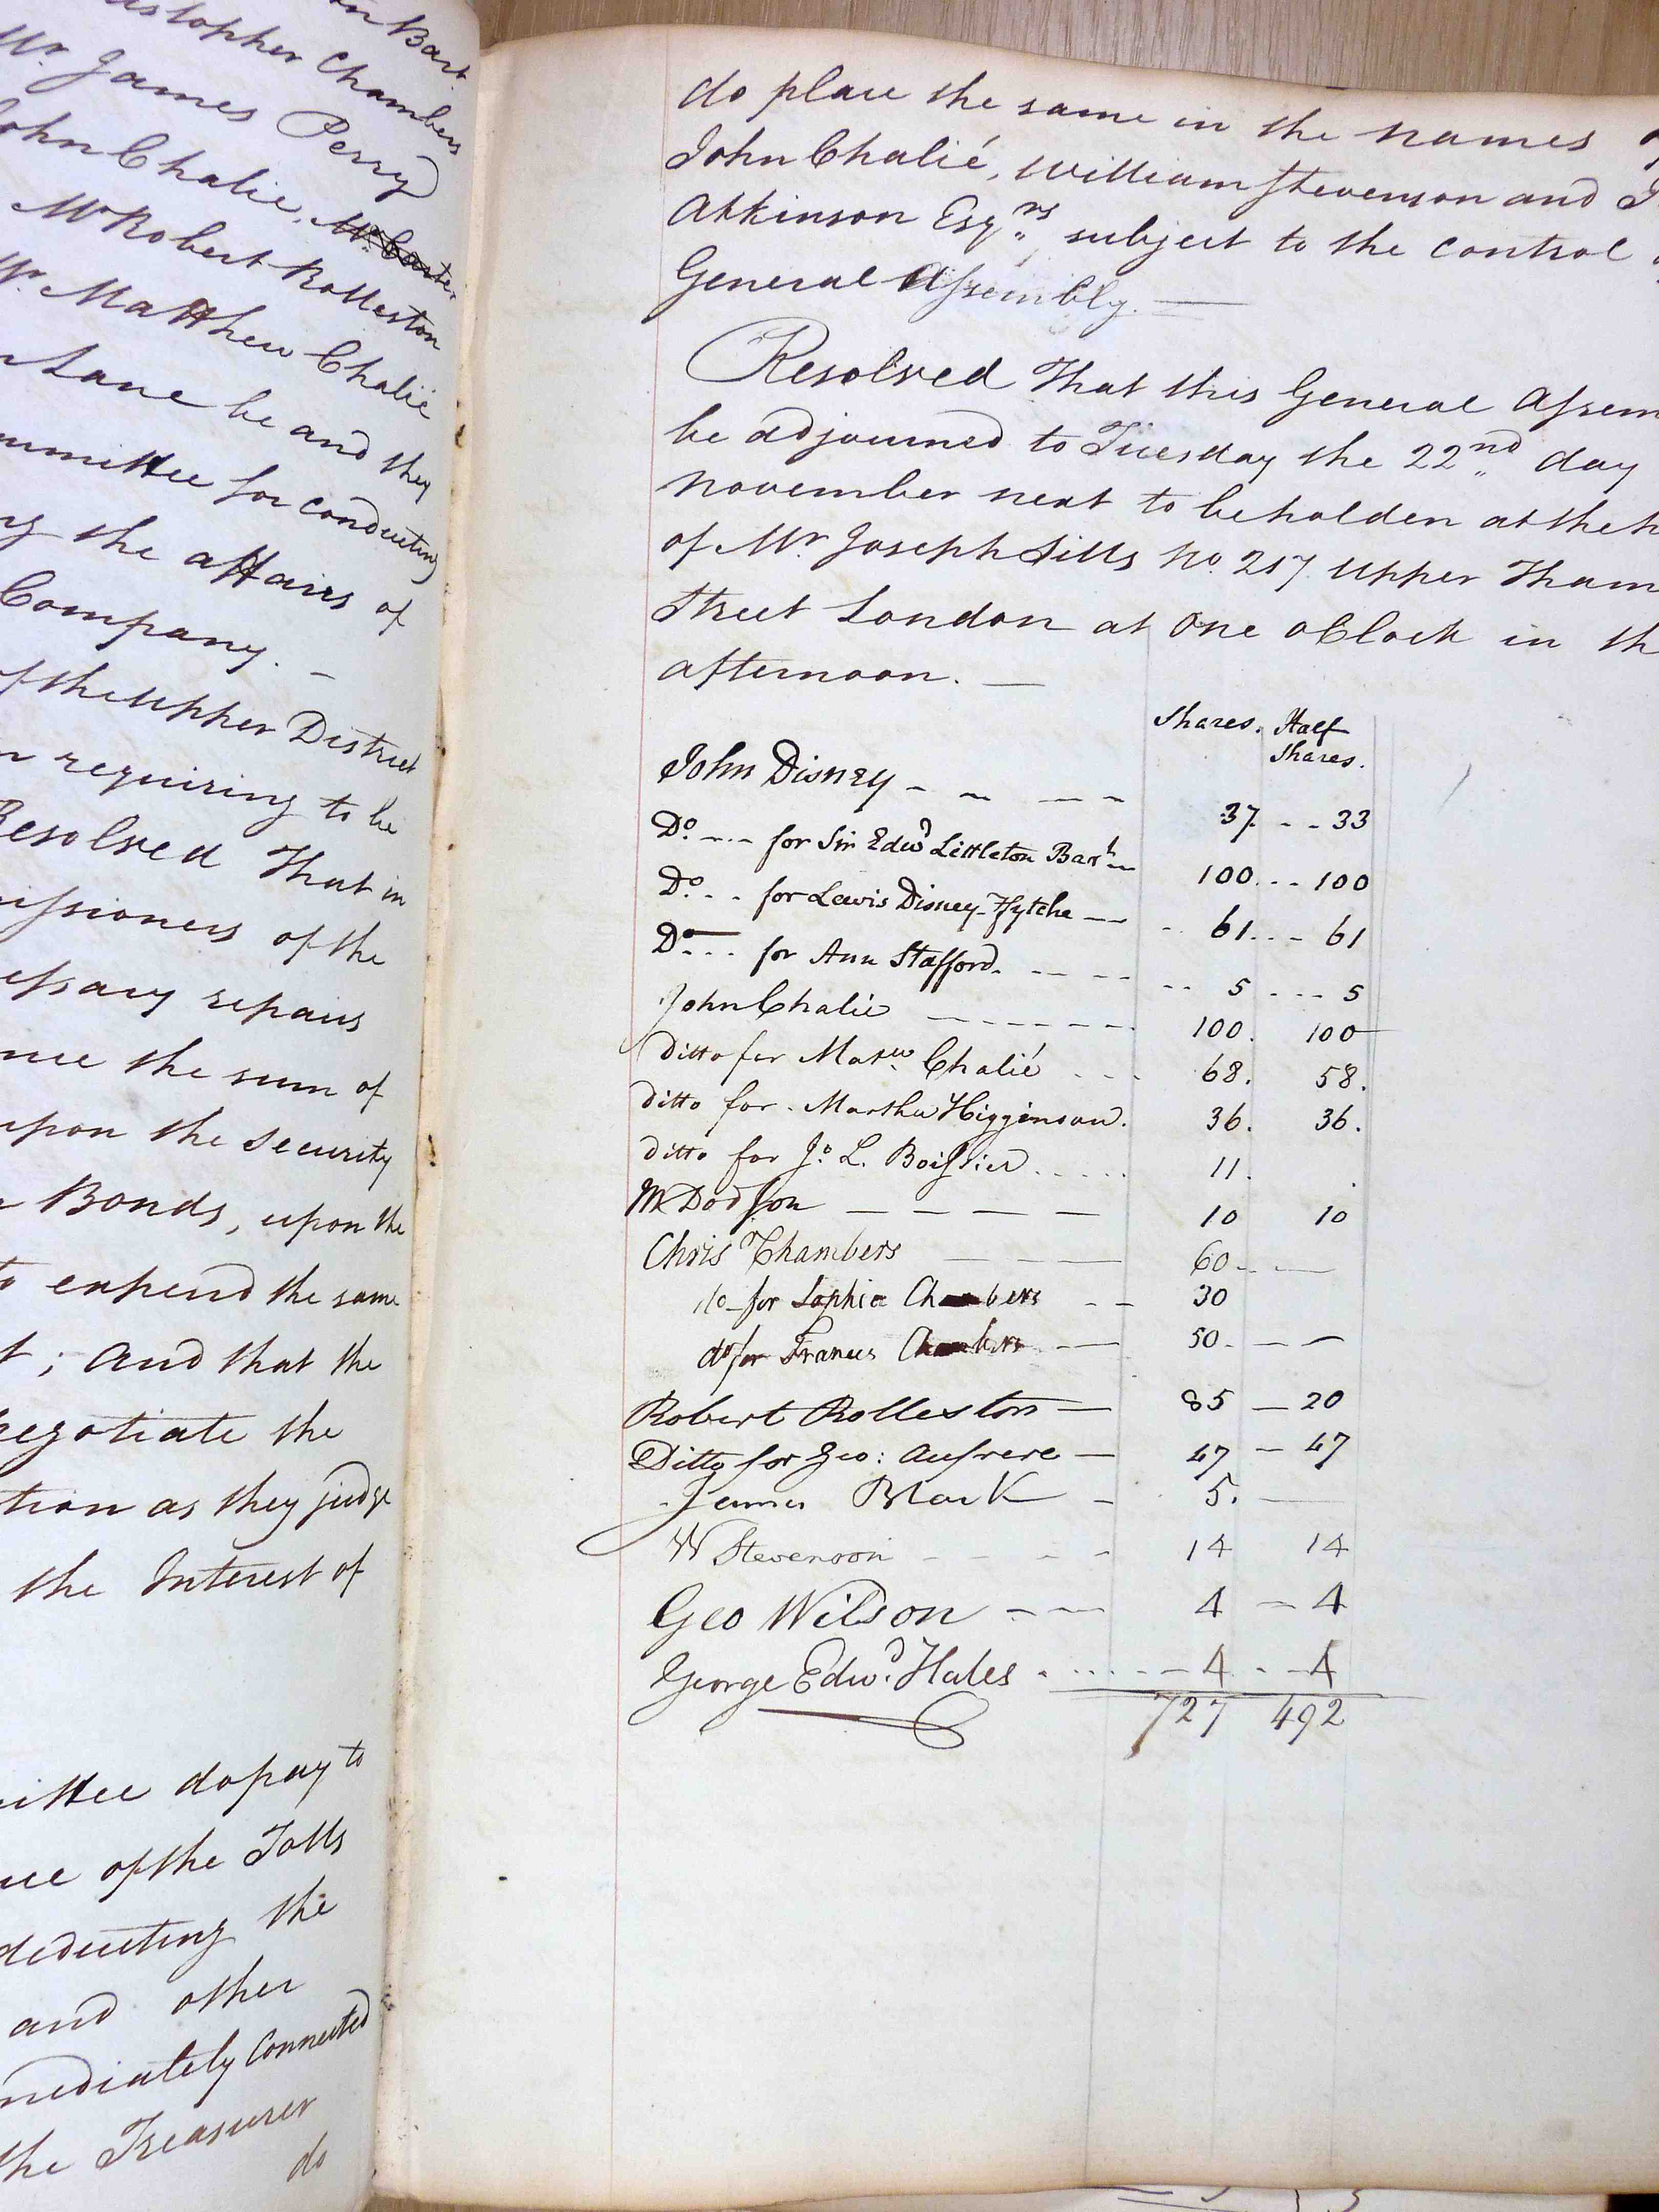 on Bart.
Chambers
Mr. James Perry
John Chalie, Mr. Carter
Mr Robert Rolleston
Mr. Matthew Chalié
Lane be and they
for conducting
the affairs of
Company. —
of the Upper District
requiring to be
Resolved That in
of the
repairs
the sum of
upon the Security
Bonds, upon the
to expend the same
; And that the
negotiate the
as they judge
the Interest of
do pay to
of the Tolls
deducting the
and other
Connected
the Treasurer
do
do place the same in the names
John Chalié, William Stevenson and
Atkinson Esqrs. subject to the control
General Assembly. —
Resolved That this General Assem
be adjourned to Tuesday the 22nd. day
November next to be holden at the h
of Mr Joseph Sills No. 217 Upper Tham
Street London at One oClock in th
afternoon. —
Shares. Half Shares.
John Disney - - - - 37. - - 33
Do. --- for Sir Edwd Littleton Bart. - 100. . - 100
Do. . . for Lewis Disney-Ffytche -- - 61. . - 61
Do. . . for Ann Stafford. - - - - - - 5 - - - 5
John Chalié - - - - - - 100. 100
Ditto for Matw. Chalié - - - 68. 58.
Ditto for Martha Higginson. 36. 36.
Ditto for Jo. L. Boissier . . . . . 11.
M Dodson — — — — 10 10
Chris Chambers — — — 60 - - —
do for Sophia Chambers - - 30
do for Frances Chambers - — 50 - — —
Robert Rolleston — 85 — 20
Ditto for Geo: Aufrere — 47 — 47
James Black - 5. —
W Stevenson - - - - 14 14
Geo Wilson - - — 4 — 4
George Edwd. Hales . . . . - - 4 . - 4
727 492